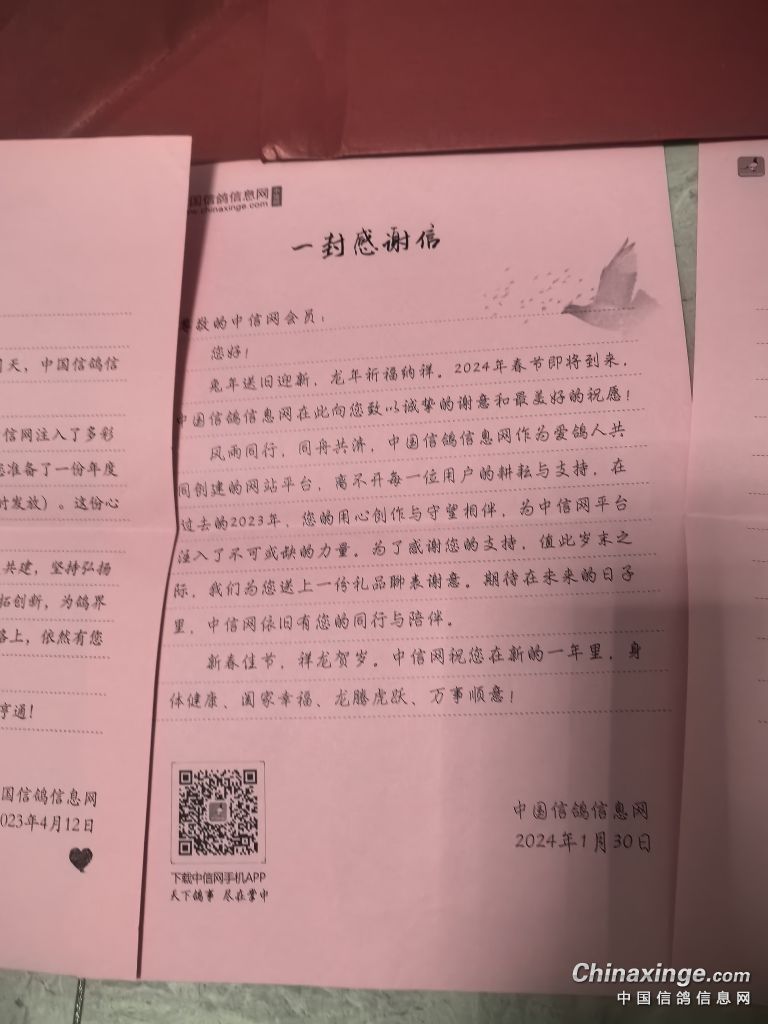 国信鸽信息网
.chinaxinge.com
一封感谢信
尊敬的中信网会员：
您好！
兔年送旧迎新，龙年祈福纳祥。2024年春节即将到来，
中国信鸽信息网在此向您致以诚挚的谢意和最美好的祝愿！
风雨同行，同舟共济，中国信鸽信息网作为爱鸽人共
同创建的网站平台，离不开每一位用户的耕耘与支持，在
过去的2023年，您的用心创作与守望相伴，为中信网平台
注入了不可或缺的力量。为了感谢您的支持，值此岁末之
际，我们为您送上一份礼品聊表谢意。期待在未来的日子
里，中信网依旧有您的同行与陪伴。
新春佳节，祥龙贺岁。中信网祝您在新的一年里，身
体健康、阖家幸福、龙腾虎跃、万事顺意！
中国信鸽信息网
2024年1月30日
下载中信网手机APP
天下鸽事 尽在掌中
天，中国信鸽信
信网注入了多彩
准备了一份年度
时发放）。这份心
共建，坚持弘扬
拓创新，为鸽界
路上，依然有您
亨通！
国信鸽信息网
023年4月12日
Chinaxinge.com
中国信鸽信息网